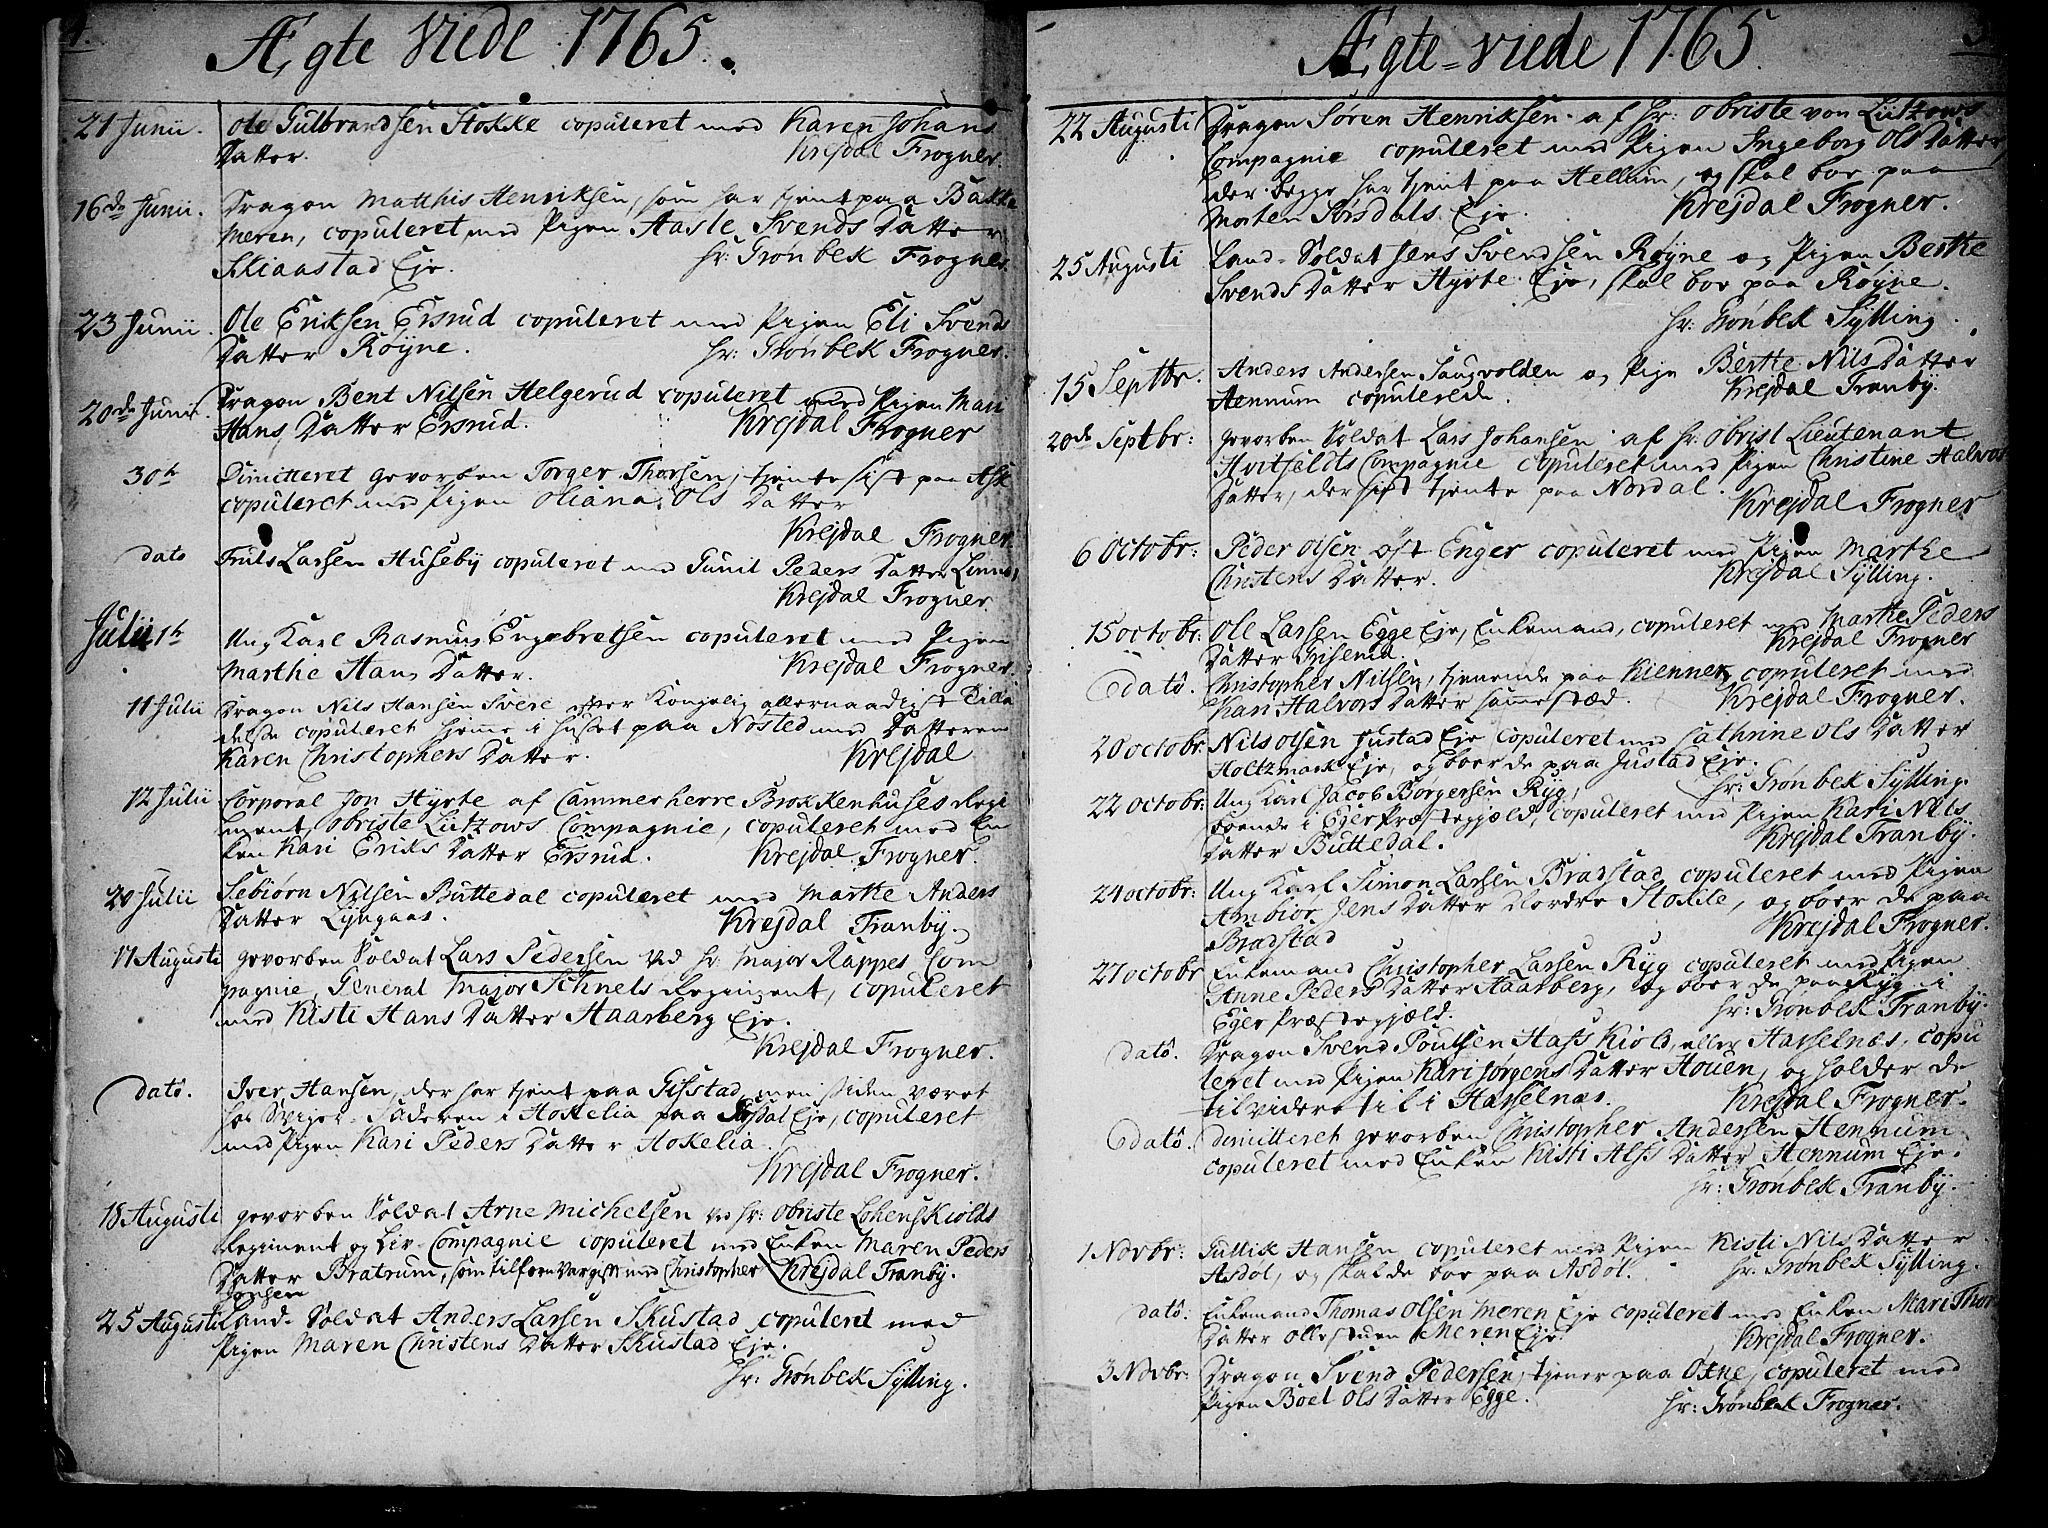 4.
Ægte viede 1765.
21 Junii. Ole Gulbrandsen Stokke copuleret med Karen Johans
Datter. Krejdal Frogner.
16de Junii. Dragon Matthis Henriksen, som har tjent paa Bakke
Meren, copuleret med Pigen Aasle Svends Datter
Skiaastad Eje. Hr: Grønbek Frogner.
23 Junii. Ole Eriksen Ersrud copuleret med Pigen Eli Svends
Datter Røyne. Hr: Grønbek Frogner.
20de Junii. Dragon Bent Nilsen Helgerud copuleret med Pigen Mari
Hans Datter Ersrud. Krejdal Frogner
30th Dimitteret gevorben Torger Thorsen, tjente sist paa Ask
copuleret med Pigen Oliana Ols Datter
Krejdal Frogner.
dato Truls Larsen Huseby copuleret med Gunil Peders Datter Linnes,
Krejdal Frogner
Julii 1th Ung Karl Rasmus Engebretsen copuleret med Pigen
Marthe Hans Datter. Krejdal Frogner.
11 Julii Dragon Nils Hansen Svere efter Kongelig allernaadigst Tilla
delse copuleret hjemme i Huset paa Nøsted med Datteren
Karen Christophers Datter. Krejdal
12 Julii Corporal Jon Hyrte af Cammerherre Brokkenhuses Regi
ment, Obriste Lützows Compagnie, copuleret med En
ken Kari Eriks Datter Ersrud. Krejdal Frogner.
20 Julii Sebiørn Nilsen Buttedal copuleret med Marthe Anders
Datter Lyngaas. Krejdal Tranby.
17 Augusti gevorben Soldat Lars Pedersen ved Hr: Major Rappes Com
pagnie, General Major Schnels Regiment, copuleret
med Kisti Hans Datter Haarberg Eje.
Krejdal Frogner.
dato. Iver Hansen, der har tjent paa Gisstad, men siden været
hos Sverjer Faderen i Hokelia paa Eje, copuleret
med Pigen Kari Peders Datter Hokelia.
Krejdal Frogner.
18 Augusti gevorben Soldat Arne Michelsen ved Hr: Obriste Løhenskiolds
Regiment og Liv-Compagnie copuleret med Enken Maren Peders
Datter Bratrum, som tilforn var gift med Christopher Krejdal Tranby.
Jonsen
25 Augusti Land-Soldat Anders Larsen Skustad copuleret med
Pigen Maren Christens Datter Skustad Eje.
Hr: Grønbek Sylling.
Ægte-viede 1765
22 Augusti Dragon Søren Henriksen af Hr: Obriste von Lützows
Compagnie copuleret med Pigen Ingeborg Ols Datter,
der begge har tjent paa Hellum, og skal boe paa
Morten Sørsdals Eje. Krejdal Frogner.
25 Augusti Land-Soldat Jens Svendsen Røyne og Pigen Berthe
Svends Datter Hyrte Eje, skal boe paa Røyne.
Hr: Grønbek Sylling.
15 Septbr. Anders Andersen Saugvolden og Pige Berthe Nils Datter
Hennum copulerede. Krejdal Tranby.
20de Septbr: gevorben Soldat Lars Johansen af Hr: Obrist Lieutenant
Hvitfeldts Compagnie copuleret med Pigen Christine Halvors
Datter, der sist tjente paa Nordal. Krejdal Frogner
6 Octobr: Peder Olsen øst Enger copuleret med Pigen Marthe
Christens Datter. Krejdal Sylling.
15 octobr: Ole Larsen Egge Eje, Enkemand, copuleret med Marthe Peders
Datter Krejdal Frogner
dato. Christopher Nilsen, tjenende paa Kienner, copuleret med
Kari Halvors Datter sammested. Krejdal Frogner.
20 octobr. Nils Olsen Justad Eje copuleret med Cathrine Ols Datter
Holtzmark Eje, og boer de paa Justad Eje.
Hr: Grønbek Sylling.
22 octobr: Ung Karl Jacob Børgersen Ryg,
boende i Eger Præstegjeld, copuleret med Pigen Kari Nils
Datter Buttedal. Krejdal Tranby.
24 octobr: Ung Karl Simon Larsen Bradstad copuleret med Pigen
Ambior Jens Datter Nordre Stokke, og boer de paa
Bradstad Krejdal Frogner.
27 octobr Enkemand Christopher Larsen Ryg copuleret med Pigen
Anne Peders Datter Haarberg, og boer de paa Ryg i
Eger Præstegjeld. Hr: Grønbek Tranby.
dato. Dragon Svend Poulsen Hasskiold eller Hasselnæs, copu
leret med Pigen Kari Jørgens Datter Houen, og holder de
til videre til i Hasselnæs. Krejdal Frogner.
dato. dimitteret gevorben Christopher Andersen Hennum
copuleret med Enken Kisti Alfs Datter Hennum Eje.
Hr: Grønbek Tranby.
1 Novbr: Gullik Hansen copuleret med Pigen Kisti Nils Datter
Asdøl, og skal de boe paa Asdøl. Hr: Grønbek Sylling.
dato. Enkemand Thomas Olsen Meren Eje copuleret med Enken Mari Thors
Datter Ollestuen Meren Eje. Krejdal Frogner.
3 Novbr: Dragon Svend Pedersen, tjener paa Oxne, copuleret med
Pigen Boel Ols Datter Egge. Hr: Grønbek Frogner.